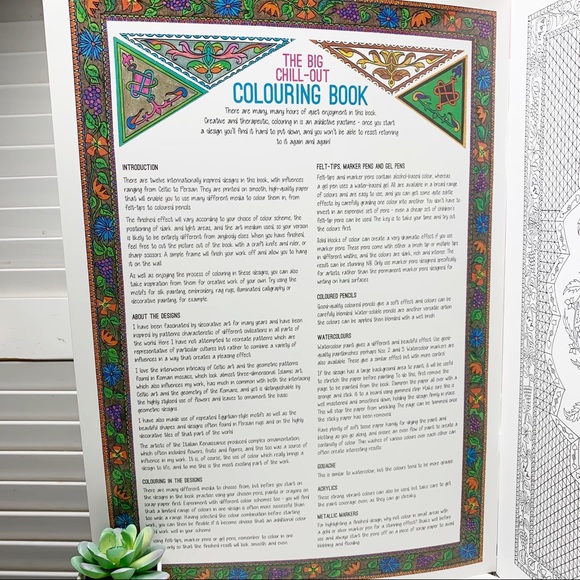 THE BIG
CHILL-OUT
COLOURING BOOK
There are many, many hours of quiet enjoyment in this book.
Creative and therapeutic, colouring in is an addictive pastime - once you start
a design you'll find it hard to put down, and you won't be able to resist returning
to it again and again!
INTRODUCTION
There are twelve internationally inspired designs in this book, with influences
ranging from Celtic to Persian. They are printed on smooth, high-quality paper
that will enable you to use many different media to colour them in, from
felt-tips to coloured pencils.
The finished effect will vary according to your choice of colour scheme, the
positioning of dark and light areas, and the art medium used, so your version
is likely to be entirely different from anybody else's. When you have finished,
feel free to cut the picture out of the book with a craft knife and ruler, or
sharp scissors. A simple frame will finish your work off and allow you to hang
it on the wall.
As well as enjoying the process of colouring in these designs, you can also
take inspiration from them for creative work of your own. Try using the
motifs for silk painting, embroidery, rag rugs, illuminated calligraphy or
decorative painting, for example.
ABOUT THE DESIGNS
I have been fascinated by decorative art for many years and have been
inspired by patterns characteristic of different civilizations in all parts of
the world. Here I have not attempted to recreate patterns which are
representative of particular cultures but rather to combine a variety of
influences in a way that creates a pleasing effect.
I love the interwoven intricacy of Celtic art and the geometric patterns
found in Roman mosaics, which look almost three-dimensional. Islamic art,
which also influences my work, has much in common with both the interlacing
Celtic art and the geometry of the Romans, and yet is distinguishable by
the highly stylized use of flowers and leaves to ornament the basic
geometric designs.
I have also made use of repeated Egyptian-style motifs as well as the
beautiful shapes and designs often found in Persian rugs and on the highly
decorative tiles of that part of the world.
The artists of the Italian Renaissance produced complex ornamentation,
which often included flowers, fruits and figures, and this too was a source of
influence in my work. It is, of course, the use of colour which really brings a
design to life, and to me this is the most exciting part of the work.
COLOURING IN THE DESIGNS
There are many different media to choose from, but before you start on
the designs in the book, practise using your chosen pens, paints or crayons on
scrap paper first. Experiment with different colour schemes too - you will find
that a limited range of colours in one design is often more successful than
too wide a range. Having selected the colour combination before starting
work, you can then be flexible if it becomes obvious that an additional colour
work well in your scheme.
felt-tips, marker pens or gel pens, remember to colour in one
only so that the finished result will look smooth and even.
FELT-TIPS, MARKER PENS AND GEL PENS
Felt-tips and marker pens contain alcohol-based colour, whereas
a gel pen uses a water-based gel. All are available in a broad range
of colours and are easy to use, and you can get some quite subtle
effects by carefully grading one colour into another. You don't have to
invest in an expensive set of pens - even a cheap set of children's
felt-tip pens can be used. The key is to take your time and try out
the colours first.
Solid blocks of colour can create a very dramatic effect if you use
marker pens. These pens come with either a brush tip or multiple tips
in different widths, and the colours are dark, rich and intense. The
result can be stunning. NB. Only use marker pens designed specifically
for artists, rather than the permanent marker pens designed for
writing on hard surfaces.
COLOURED PENCILS
Good-quality coloured pencils give a soft effect and colours can be
carefully blended. Water-soluble pencils are another versatile option:
the colours can be applied then blended with a wet brush.
WATERCOLOURS
Watercolour paint gives a different and beautiful effect. Use good-
quality paintbrushes, perhaps Nos. 2 and 5. Watercolour markers are
also available. These give a similar effect but with more control.
If the design has a large background area to paint, it will be useful
to stretch the paper before painting. To do this, first remove the
page to be painted from the book. Dampen the paper all over with a
sponge and stick it to a board using gummed strip. Make sure this is
well moistened and smoothed down, holding the design firmly in place.
This will stop the paper from wrinkling. The page can be removed once
the sticky paper has been removed.
Have plenty of soft tissue paper handy for drying the paint and
blotting as you go along, and ensure an even flow of paint to create a
continuity of colour. Thin washes of various colours over each other can
often create interesting results.
GOUACHE
This is similar to watercolour, but the colours tend to be more opaque.
ACRYLICS
These strong, vibrant colours can also be used, but take care to get
the paint coverage even, as they can go streaky.
METALLIC MARKERS
For highlighting a finished design, why not colour in small areas with
a gold or silver marker pen for a stunning effect? Shake well before
use and always start the pen off on a piece of scrap paper to avoid
blobbing and flooding.